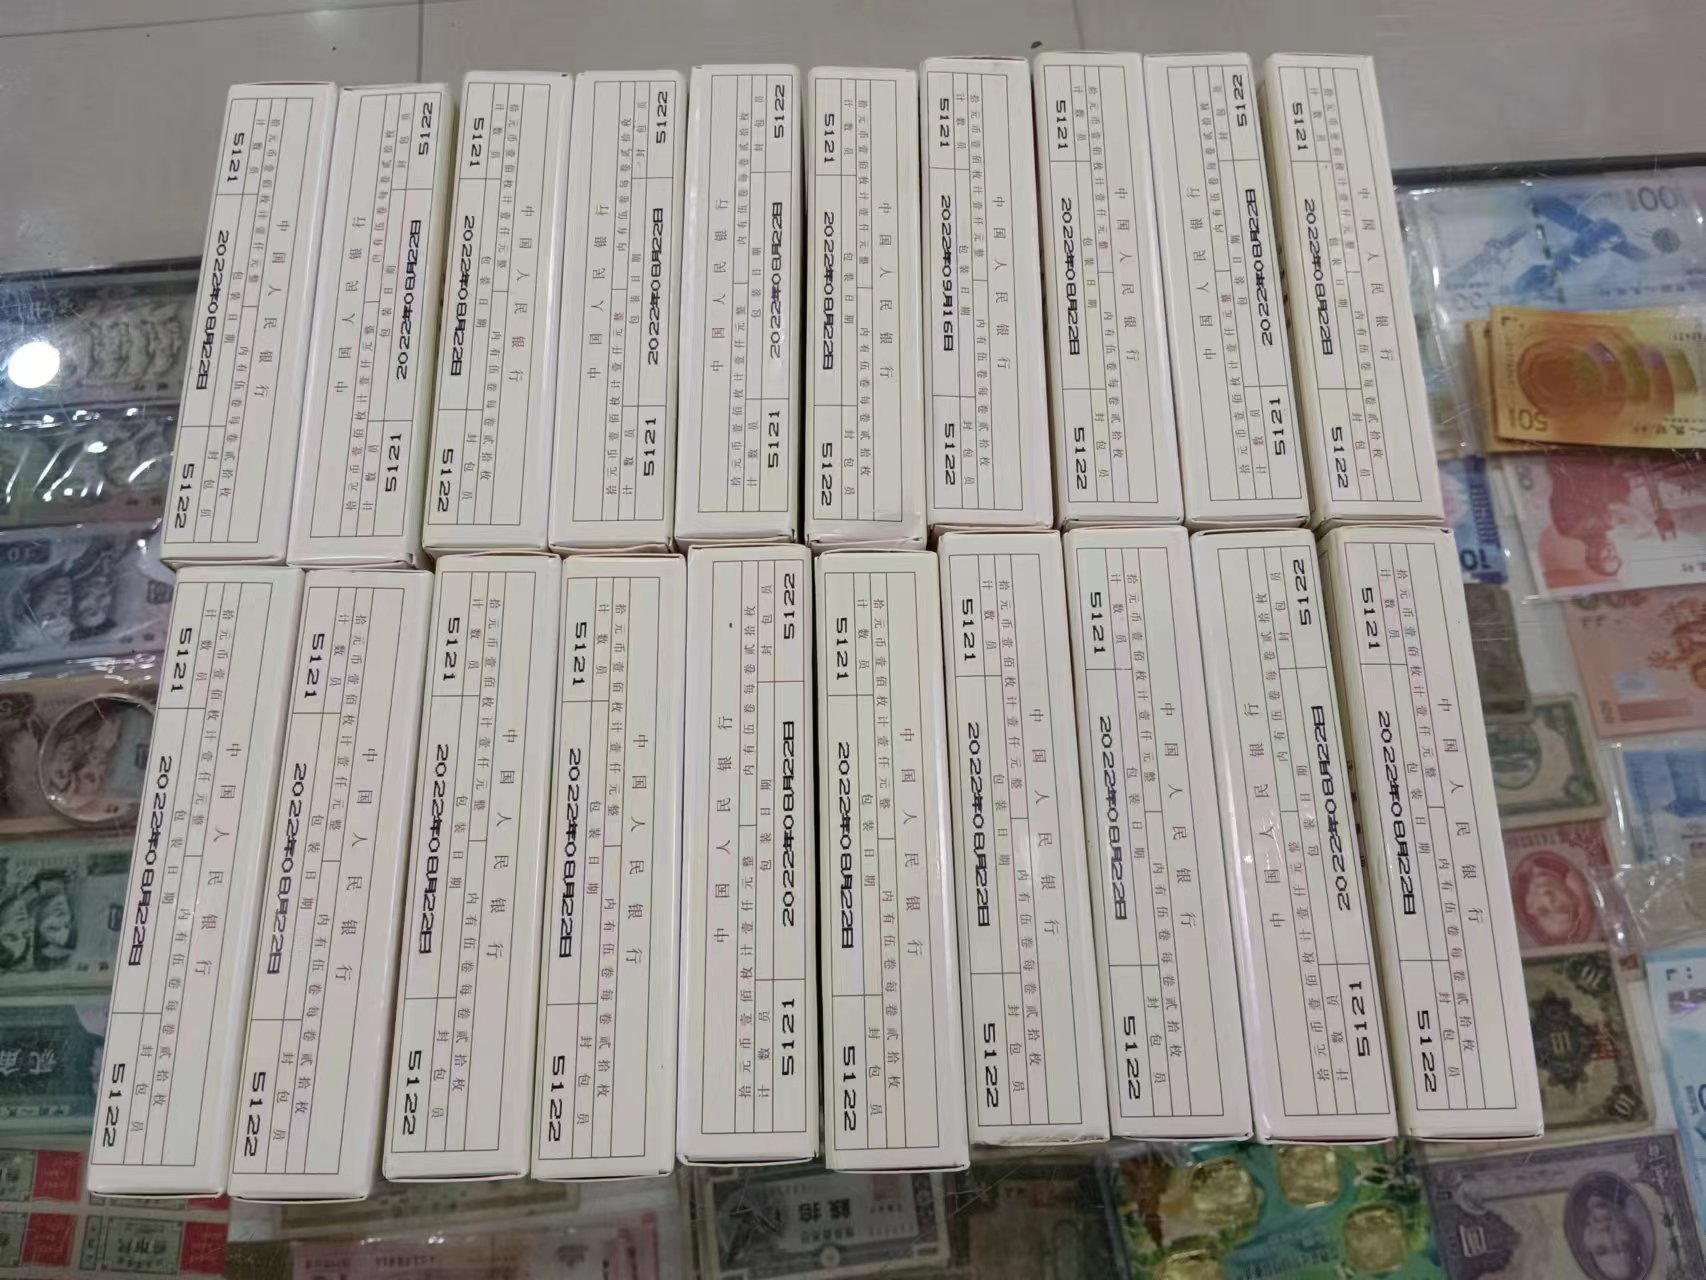 中国人民银行
拾元币壹佰枚计壹仟元整 内有伍卷每卷贰拾枚
计数员 包装日期 封包员
5121 2022年08月22日 5122
中国人民银行
拾元币壹佰枚计壹仟元整 内有伍卷每卷贰拾枚
计数员 包装日期 封包员
5121 2022年08月22日 5122
中国人民银行
拾元币壹佰枚计壹仟元整 内有伍卷每卷贰拾枚
计数员 包装日期 封包员
5121 2022年08月22日 5122
中国人民银行
拾元币壹佰枚计壹仟元整 内有伍卷每卷贰拾枚
计数员 包装日期 封包员
5121 2022年08月22日 5122
中国人民银行
拾元币壹佰枚计壹仟元整 内有伍卷每卷贰拾枚
计数员 包装日期 封包员
5121 2022年08月22日 5122
中国人民银行
拾元币壹佰枚计壹仟元整 内有伍卷每卷贰拾枚
计数员 包装日期 封包员
5121 2022年08月22日 5122
中国人民银行
拾元币壹佰枚计壹仟元整 内有伍卷每卷贰拾枚
计数员 包装日期 封包员
5121 2022年09月16日 5122
中国人民银行
拾元币壹佰枚计壹仟元整 内有伍卷每卷贰拾枚
计数员 包装日期 封包员
5121 2022年08月22日 5122
中国人民银行
拾元币壹佰枚计壹仟元整 内有伍卷每卷贰拾枚
计数员 包装日期 封包员
5121 2022年08月22日 5122
中国人民银行
拾元币壹佰枚计壹仟元整 内有伍卷每卷贰拾枚
计数员 包装日期 封包员
5121 2022年08月22日 5122
中国人民银行
拾元币壹佰枚计壹仟元整 内有伍卷每卷贰拾枚
计数员 包装日期 封包员
5121 2022年08月22日 5122
中国人民银行
拾元币壹佰枚计壹仟元整 内有伍卷每卷贰拾枚
计数员 包装日期 封包员
5121 2022年08月22日 5122
中国人民银行
拾元币壹佰枚计壹仟元整 内有伍卷每卷贰拾枚
计数员 包装日期 封包员
5121 2022年08月22日 5122
中国人民银行
拾元币壹佰枚计壹仟元整 内有伍卷每卷贰拾枚
计数员 包装日期 封包员
5121 2022年08月22日 5122
中国人民银行
拾元币壹佰枚计壹仟元整 内有伍卷每卷贰拾枚
计数员 包装日期 封包员
5121 2022年08月22日 5122
中国人民银行
拾元币壹佰枚计壹仟元整 内有伍卷每卷贰拾枚
计数员 包装日期 封包员
5121 2022年08月22日 5122
中国人民银行
拾元币壹佰枚计壹仟元整 内有伍卷每卷贰拾枚
计数员 包装日期 封包员
5121 2022年08月22日 5122
中国人民银行
拾元币壹佰枚计壹仟元整 内有伍卷每卷贰拾枚
计数员 包装日期 封包员
5121 2022年08月22日 5122
中国人民银行
拾元币壹佰枚计壹仟元整 内有伍卷每卷贰拾枚
计数员 包装日期 封包员
5121 2022年08月22日 5122
中国人民银行
拾元币壹佰枚计壹仟元整 内有伍卷每卷贰拾枚
计数员 包装日期 封包员
5121 2022年08月22日 5122
100
10
贰角